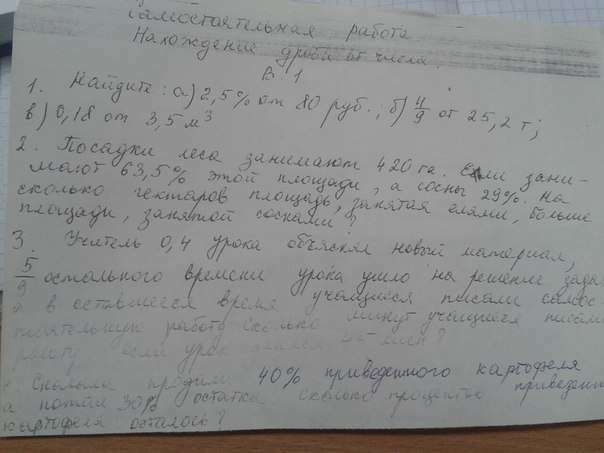 Самостоятельная работа
Нахождение дроби от числа.
В-1
1. Найдите: а) 2,5% от 80 руб.; б) 4/9 от 25,2 т;
в) 0,18 от 3,5 м³
2. Посадки леса занимают 420 га. Ели зани-
мают 63,5% этой площади, а сосны 29%. На
сколько гектаров площадь, занятая елями, больше
площади, занятой соснами?
3. Учитель 0,4 урока объяснял новый материал,
5/9 остального времени урока ушло на решение зада
а в оставшееся время учащиеся писали самос
тоятельную работу Сколько минут учащиеся писали
работу если урок длился 45 мин?
Сначала продали 40% приведенного картофеля
а потом 30% остатка сколько процентов приведенн
картофеля осталось?